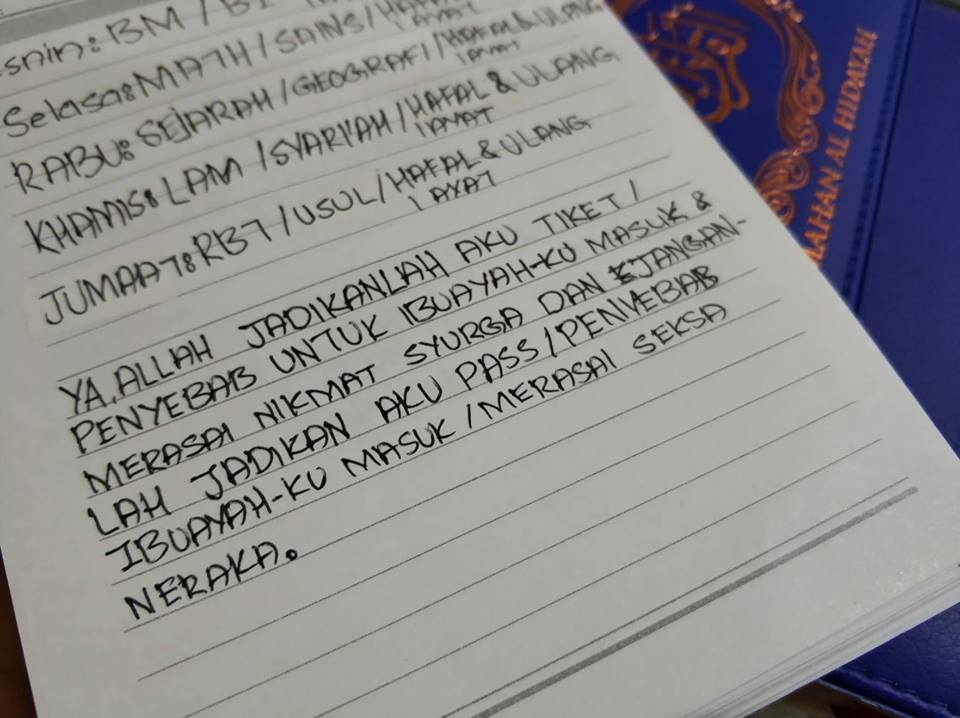 snin: BM / BI
Selasa: MATH / SAINS / HAFAL
1 AYAT
RABU: SEJARAH / GEOGRAFI / HAFAL & ULANG
1 AYAT
KHAMIS: LAM / SYARIAH / HAFAL & ULANG
1 AYAT
JUMAAT: RBT / USUL / HAFAL & ULANG
1 AYAT
YA, ALLAH JADIKANLAH AKU TIKET /
PENYEBAB UNTUK IBUAYAH-KU MASUK &
MERASAI NIKMAT SYURGA DAN JANGAN-
LAH JADIKAN AKU PASS / PENYEBAB
IBUAYAH-KU MASUK / MERASAI SEKSA
NERAKA.
AHAN AL HIDAYAH